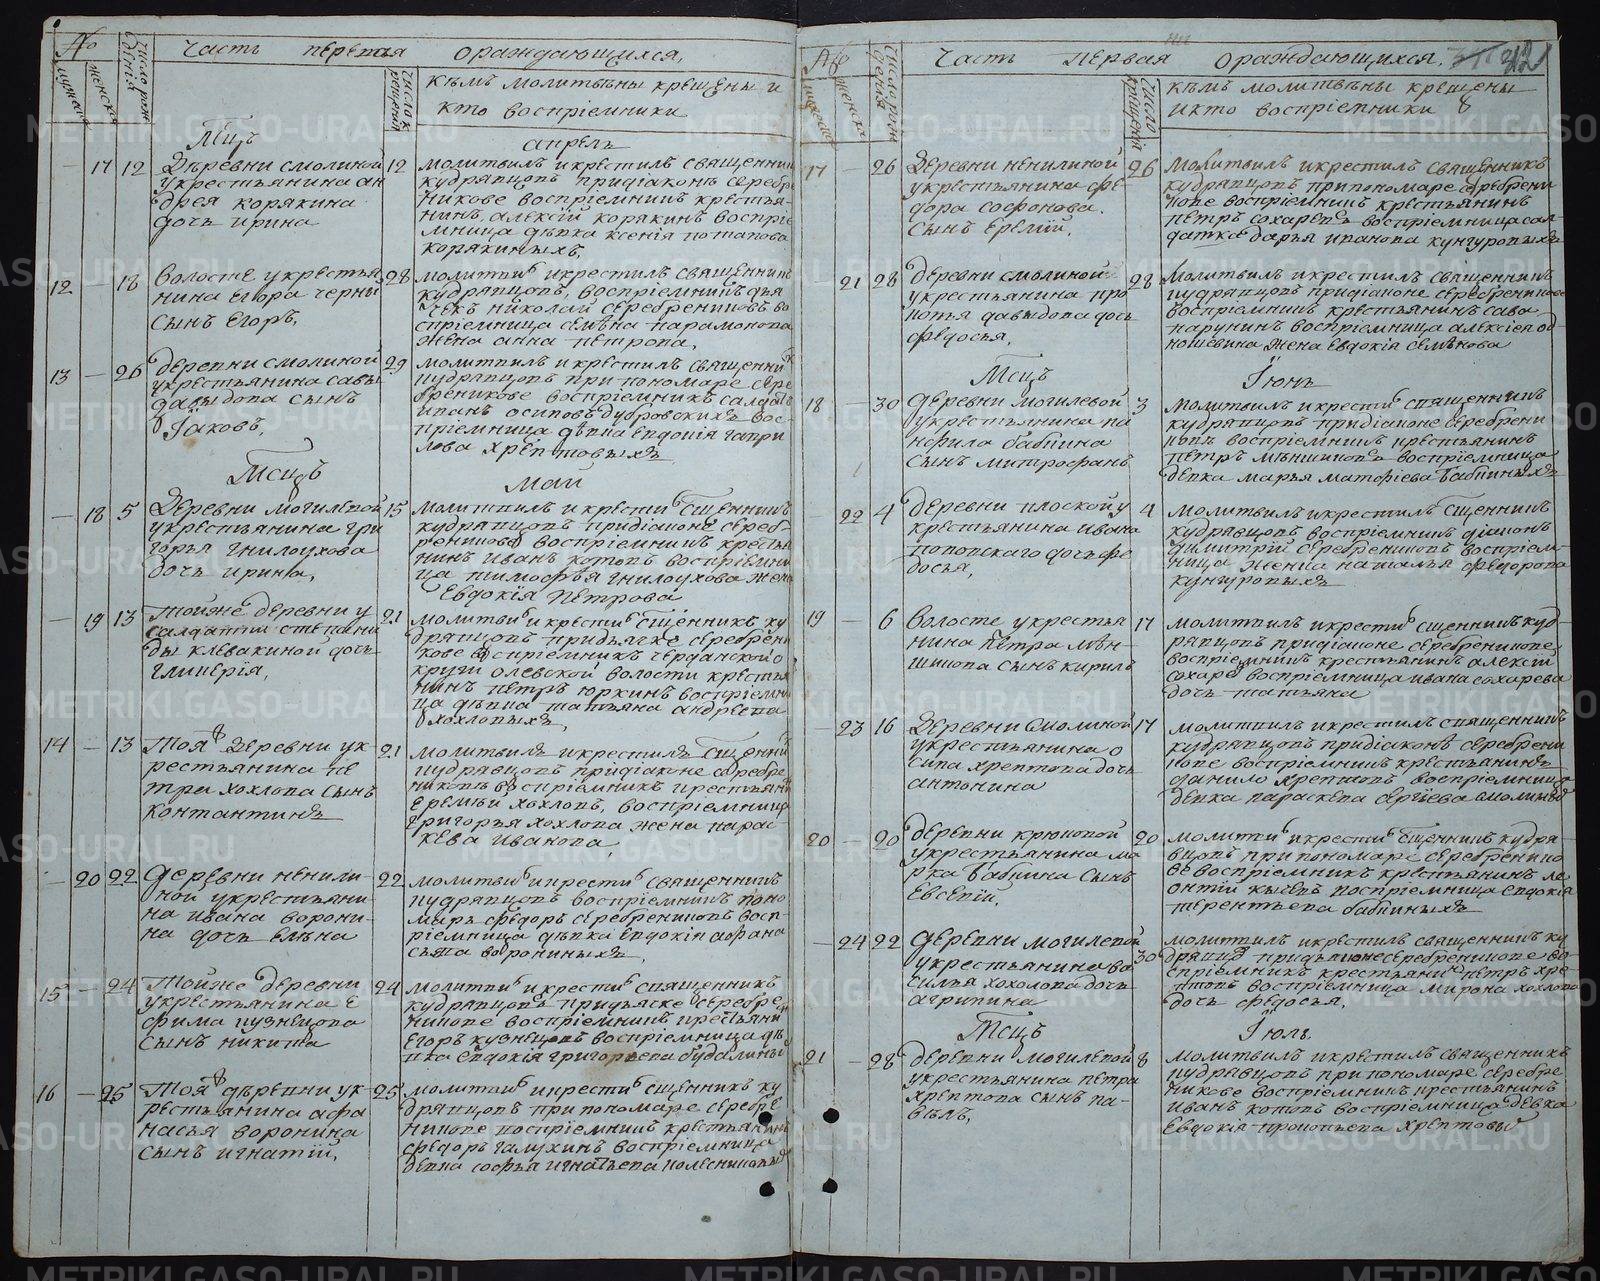 № Часть первая о раждающихся.
мужеска
женска
число рож
дения
число к
рещения
кѣмъ молитвѣны крещены и
кто восприемники
Мцъ
апрель
17 12 Деревни смолиной
у крестьянина ан
дрея корякина
дочь ирина
12 молитвилъ и крестилъ священник
кудрявцовъ при діаконѣ серебре
никове восприемникъ крестья-
нинъ алексій корякинъ воспріе
мница дѣвка ксенія потапова
корякиныхъ.
12 18 волости у крестья
нина Егора черны
сынъ Егоръ,
28 молитви и крестилъ священникъ
кудрявцовъ, восприемникъ дья
чекъ николай серебрениковъ во
спріемница семѣна парамонова
жена анна петрова,
13 26 деревни смолиной
у крестьянина савы
давыдова сынъ
Іаковъ,
29 молитвилъ и крестилъ священник
кудрявцовъ при пономаре сере
бреникове восприемникъ салдатъ
иванъ осиповъ дубровскихъ вос-
пріемница дѣвка евдокія гаври
лова хрептовыхъ
Мсцъ
май
18 5 Деревни могилевой
у крестьянина гри
горья гнилоухова
дочь ирина,
15 молитвилъ и крести сщенникъ
кудрявцовъ при діаконе сереб-
рениково восприемникъ крестья
нинъ иванъ котовъ воспріемни
ца тимофѣя гнилоухова жена
Евдокія петрова
19 13 той же деревни у
салдатки степани
ды клевакиной дочь
гликерія,
21 молитви и крести сщенникъ ку
дрявцовъ при дьячке серебрени
кове восприемникъ черданской о
круги олевской волости крестья
нинъ петръ юркинъ воспріемни
ца дѣвка татьяна андреева
хохловыхъ,
14 13 Той деревни у к
рестьянина пе
тра хохлова сынъ
контантинъ
21 молитвилъ и крестилъ сщенни
кудрявцовъ при діаконе серебре
никовѣ восприемникъ крестьяни
еремѣй хохловъ, воспріемница
григорья хохлова жена парас-
кева иванова,
20 22 деревни ненили-
ной у крестьяни-
на ивана ворони-
на дочь елѣна
22 молитви и крести священникъ
кудрявцовъ восприемникъ поно
марь федоръ серебрениковъ восп-
ріемница дѣвка евдокія афана
сьева ворониныхъ,
15 24 Той же деревни
у крестьянина е
фима кузнецова
сынъ никита
24 молитви и крести священникъ
кудрявцовъ при дьячке серебре
никове восприемникъ крестьяни
Егоръ кузнецовъ воспріемница дѣ
вка евдокія григорьева
16 25 Той деревни у к-
рестьянина афа
насья воронина
сынъ игнатій,
25 молитви и крести сщенникъ ку
дрявцовъ при пономаре серебре
никове восприемникъ крестьяни
федоръ галухинъ воспріемница
девка софья игнатьева
№ Часть первая о раждающихся. 42
женска
число рож
дения
число
крещеній
кѣмъ молитвѣны крещены
и кто восприемники
17 26 Деревни ненилиной
у крестьянина фе
дора софонова.
сынъ еремій,
26 молитвилъ и крестилъ священникъ
кудрявцовъ при пономаре серебрени
кове восприемникъ крестьянинъ
петръ сохаревъ воспріемница сал-
датка дарья иванова кунгуровыхъ
21 28 деревни смолиной
у крестьянина про
копья давыдова дочь
федосья,
28 молитвилъ и крестилъ священникъ
кудрявцовъ при діаконе серебреникове
восприемникъ крестьянинъ сава
парунинъ воспріемница алексѣя од-
ношевина жена евдокія семѣнова
Мсцъ
Іюнь
18 30 деревни могилевой
у крестьянина па
нфила бабкина
сынъ митрофанъ
3 молитвилъ и крести священникъ
кудрявцовъ при діаконе серебрени
ковъ восприемникъ крестьянинъ
петръ мѣншиковъ воспріемница
девка марья матфіева бабкиныхъ
22 4 деревни плоской у
крестьянина ивана
поповскаго дочь фе
досья,
4 молитвилъ и крестилъ сщенникъ
кудрявцовъ восприемникъ діаконъ
димитрій серебрениковъ воспріем-
ница женка наталья федорова
кунгуровыхъ
19 6 волости у крестья
нина петра мѣн-
шикова сынъ кирилъ
17 молитвилъ и крести сщенникъ куд-
рявцовъ при діаконе серебреникове,
восприемникъ крестьянинъ алексій
сохаре воспріемница ивана сохарева
дочь татьяна
23 16 Деревни Смолиной
у крестьянина о
сипа хрептова дочь
антонина
17 молитвилъ и крестилъ священникъ
кудрявцовъ при діаконѣ серебрени
кове восприемникъ крестьянинъ
данило хрептовъ воспріемница
девка параскева сергѣева смолины
20 20 деревни крюковой
у крестьянина ма
рка бабкина сынъ
Евсевій,
20 молитви и крести сщенникъ кудря-
вцовъ при пономаре серебренико
ве восприемникъ крестьянинъ ле
онтій воспріемница евдокія
терентьева бабкиныхъ
24 22 деревни могилевой
у крестьянина ва
силья хохлова дочь
агрипина
30 молитвилъ и крестилъ священникъ ку
дрявцо при дьяконе серебреникове во
спріемникъ крестьянинъ петръ хре
птовъ воспріемница мирона хохлова
дочь федосья.
Мсцъ
Іюль
21 28 деревни могилевой
у крестьянина петра
хрептова сынъ па-
вѣлъ,
8 молитвилъ и крестилъ священникъ
кудрявцовъ при пономаре серебре
никове восприемникъ крестьянинъ
иванъ котовъ воспріемница девка
Евдокія прокопьева хрептовы
METRIKI.GASO-URAL.RU